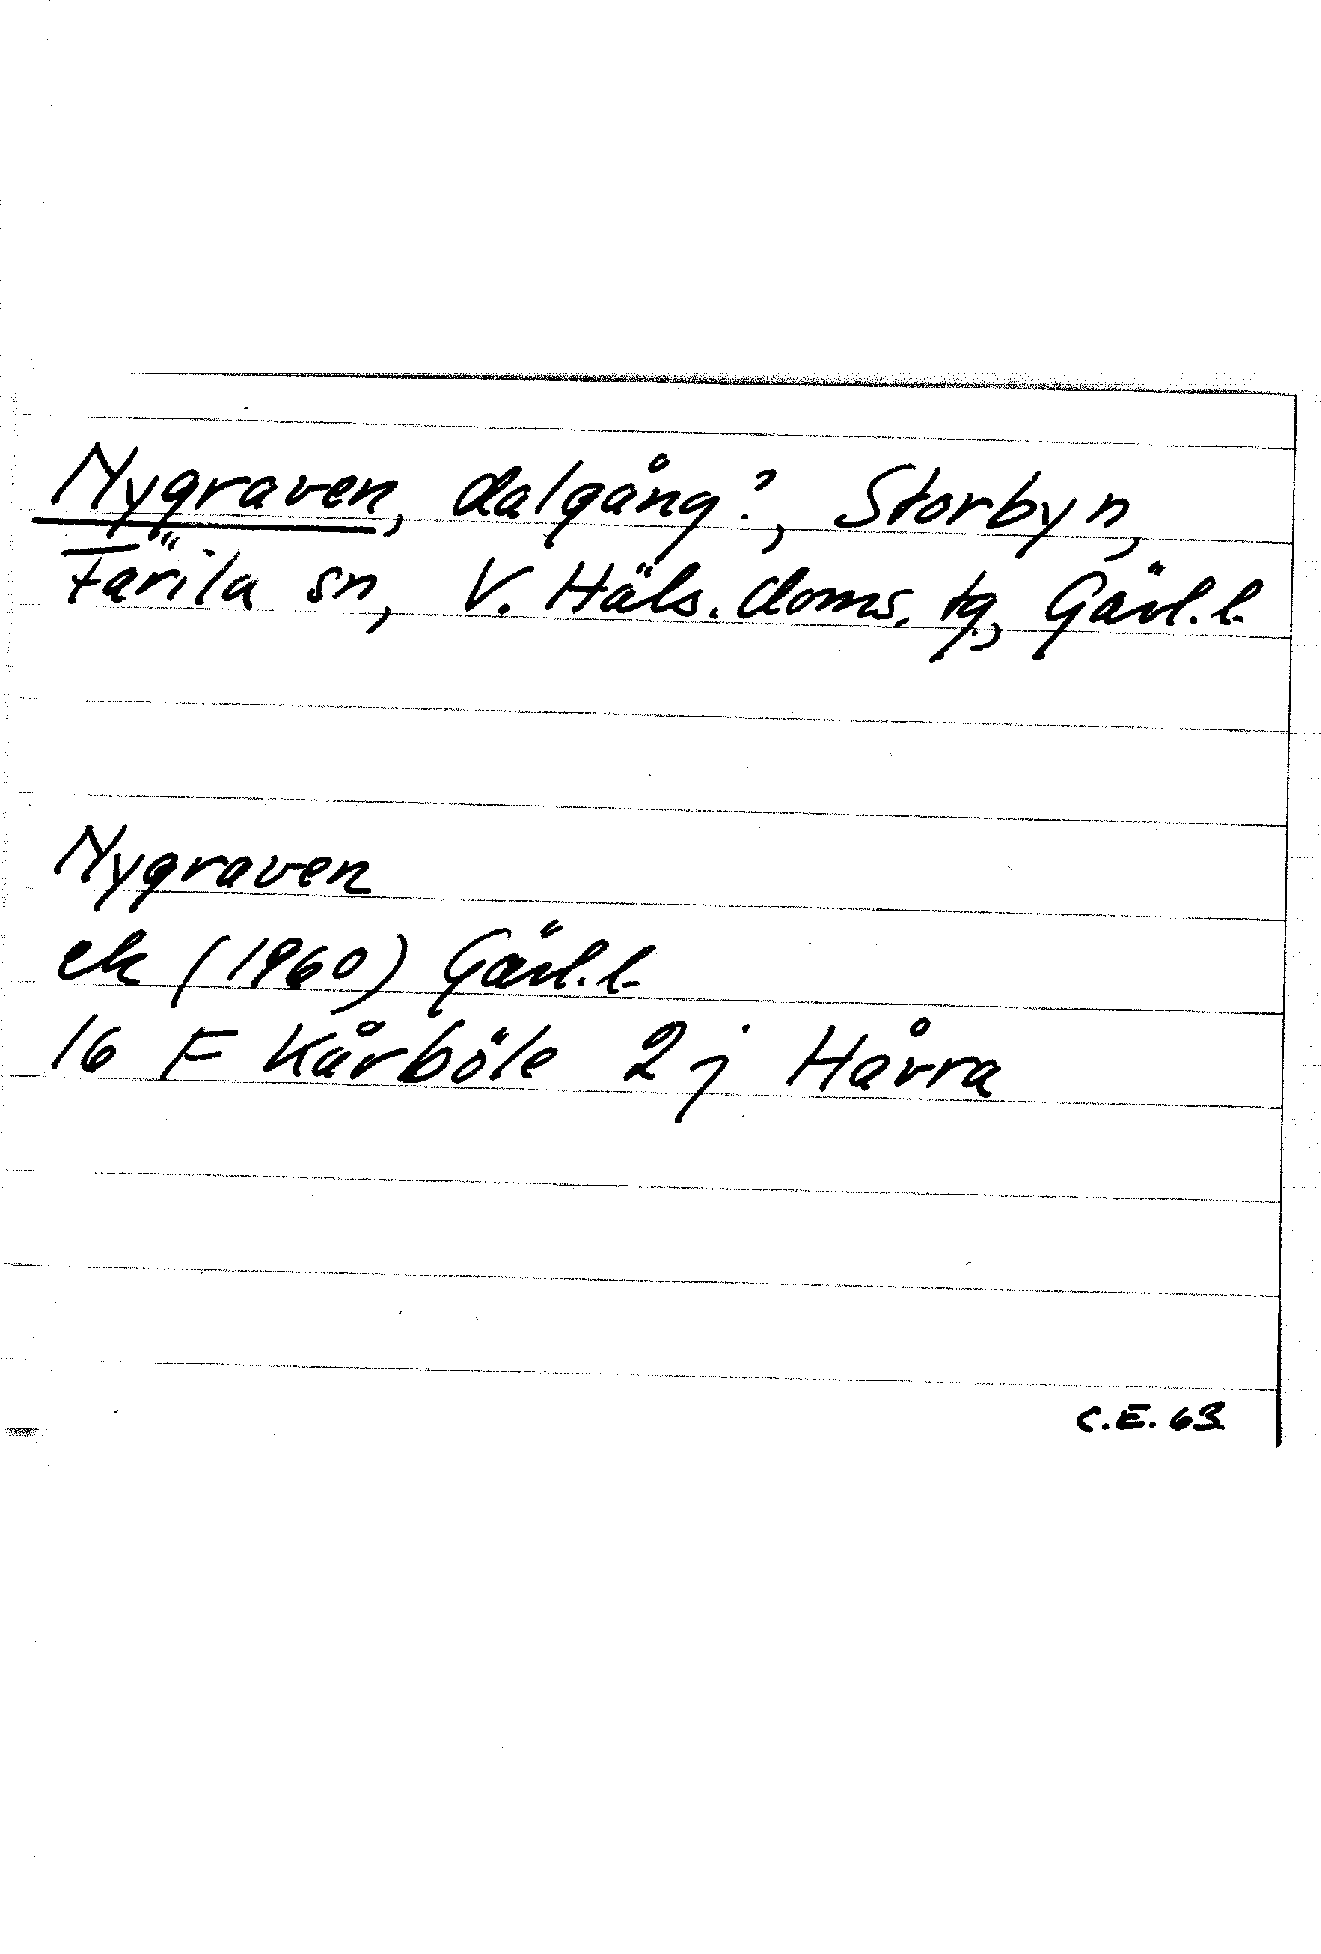 Nygraven, dalgång?, Storbyn,
Färila sn, V. Häls. doms. tg, Gävl. l.
Nygraven
ek (1960) Gävl. l.
16 F Kårböle 2 j Håvra
C.E. 63